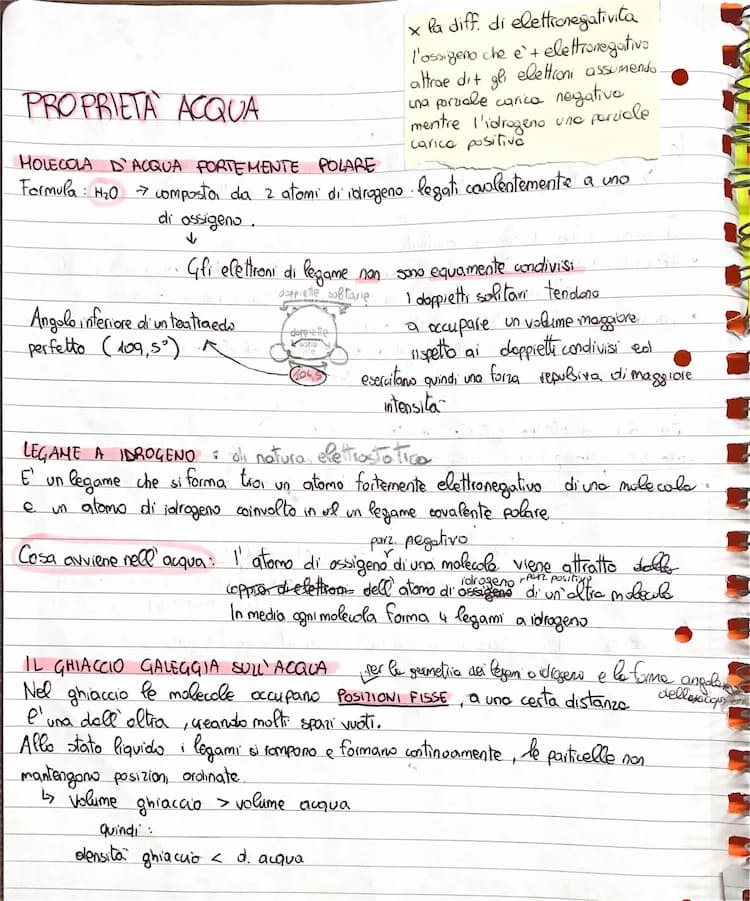 x la diff. di elettronegatività
l'ossigeno che e' + elettronegativo
attrae di + gli elettroni assumendo
una parziale carica negativa
mentre l'idrogeno una parziale
carica positiva
PROPRIETÀ ACQUA
MOLECOLA D'ACQUA FORTEMENTE POLARE
Formula: H₂O → composta da 2 atomi di idrogeno legati covalentemente a uno
di ossigeno.
↓
Gli elettroni di legame non sono equamente condivisi
doppiette solitarie
I doppietti solitari tendono
a occupare un volume maggiore
rispetto ai doppietti condivisi ed
esercitano quindi una forza repulsiva di maggiore
intensità
Angolo inferiore di un teatraedo
perfetto (109,5°)
doppiette
104,5
LEGAME A IDROGENO : di natura elettrostatica
E' un legame che si forma tra un atomo fortemente elettronegativo di una molecola
e un atomo di idrogeno coinvolto in un legame covalente polare
Cosa avviene nell'acqua: l'atomo di ossigeno parz. negativo di una molecola viene attratto dalle
coppia di elettroni dell'atomo di ossigeno idrogeno parz. positivo di un'altra molecola
In media ogni molecola forma 4 legami a idrogeno
IL GHIACCIO GALEGGIA SULL'ACQUA per la geometria dei legami a idrogeno e la forma angolare
Nel ghiaccio le molecole occupano POSIZIONI FISSE, a una certa distanza
l'una dall'altra, creando molti spazi vuoti.
Allo stato liquido i legami si rompono e formano continuamente, le particelle non
mantengono posizioni ordinate.
↳ volume ghiaccio > volume acqua
quindi:
densità ghiaccio < d. acqua